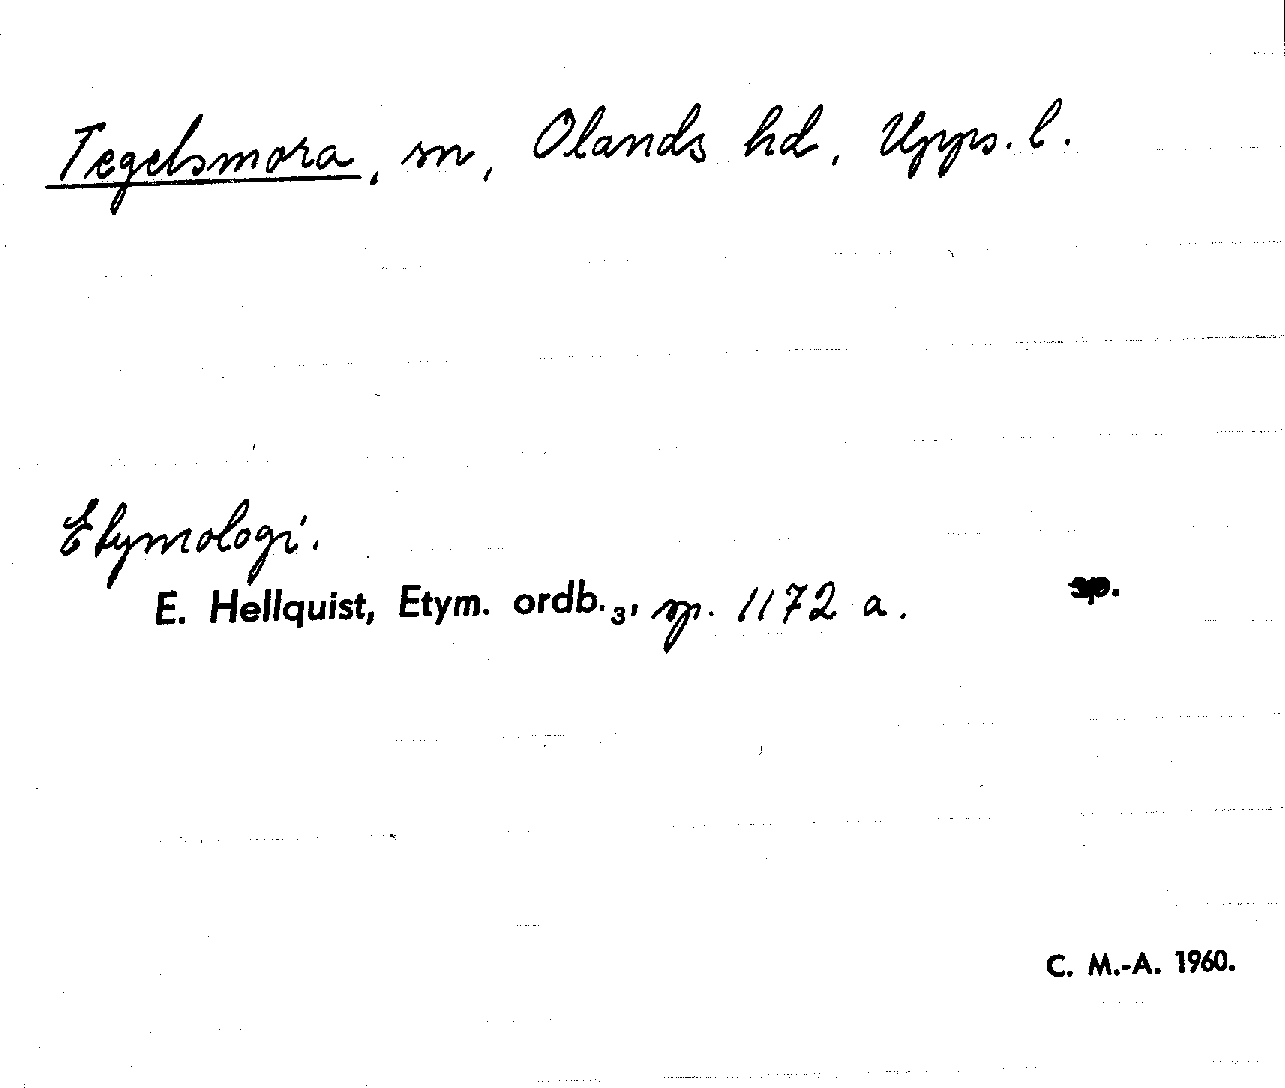 Tegelsmora, sn, Olands hd, Upps. l.
Etymologi.
E. Hellquist, Etym. ordb.₃, sp. 1172 a.
sp.
C. M.-A. 1960.